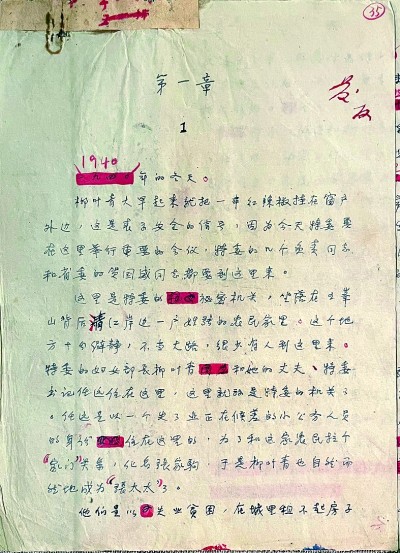 35
第一章
1
1940
一九四〇年的冬天。
柳叶青大早起来就把一串红辣椒挂在窗户
外边，这是表示安全的信号，因为今天特委要
在这里举行重要的会议，特委的几个负责同志
和省委的贺国威同志都要到这里来。
这里是特委的秘密机关，坐落在五峰
山背后清江岸边一户姓张的农民家里。这个地
方十分僻静，不当大路，很少有人到这里来。
特委的妇女部长柳叶青和她的丈夫、特委
书记任远住在这里，这里就成为特委的机关了
。任远是以一个失了业正在候差的小公务人员
的身份住在这里的，为了和这家农民拉个
“家门”关系，化名张敬驹，于是柳叶青也自然而
然地成为“張太太”了。
他们是以失业贫困，在城里租不起房子